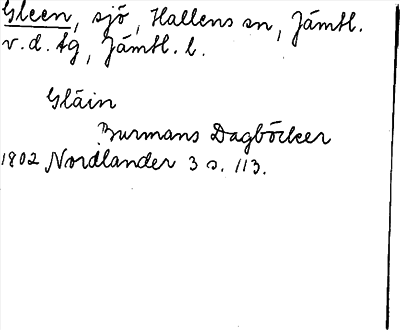 Gleen, sjö, Hallens sn, Jämtl.
v. d. tg, Jämtl. l.
Gläin
Burmans Dagböcker
1802 Nordlander 3 s. 113.